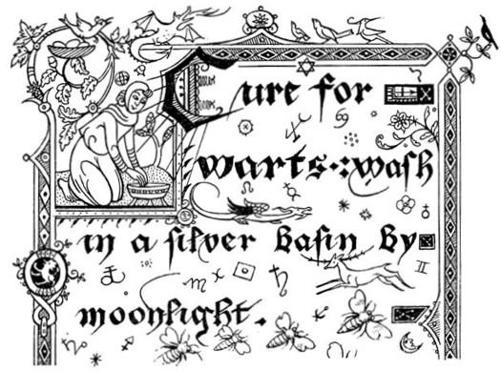 Cure for
warts·:waſh
in a ſilver baſin by
moonlight.